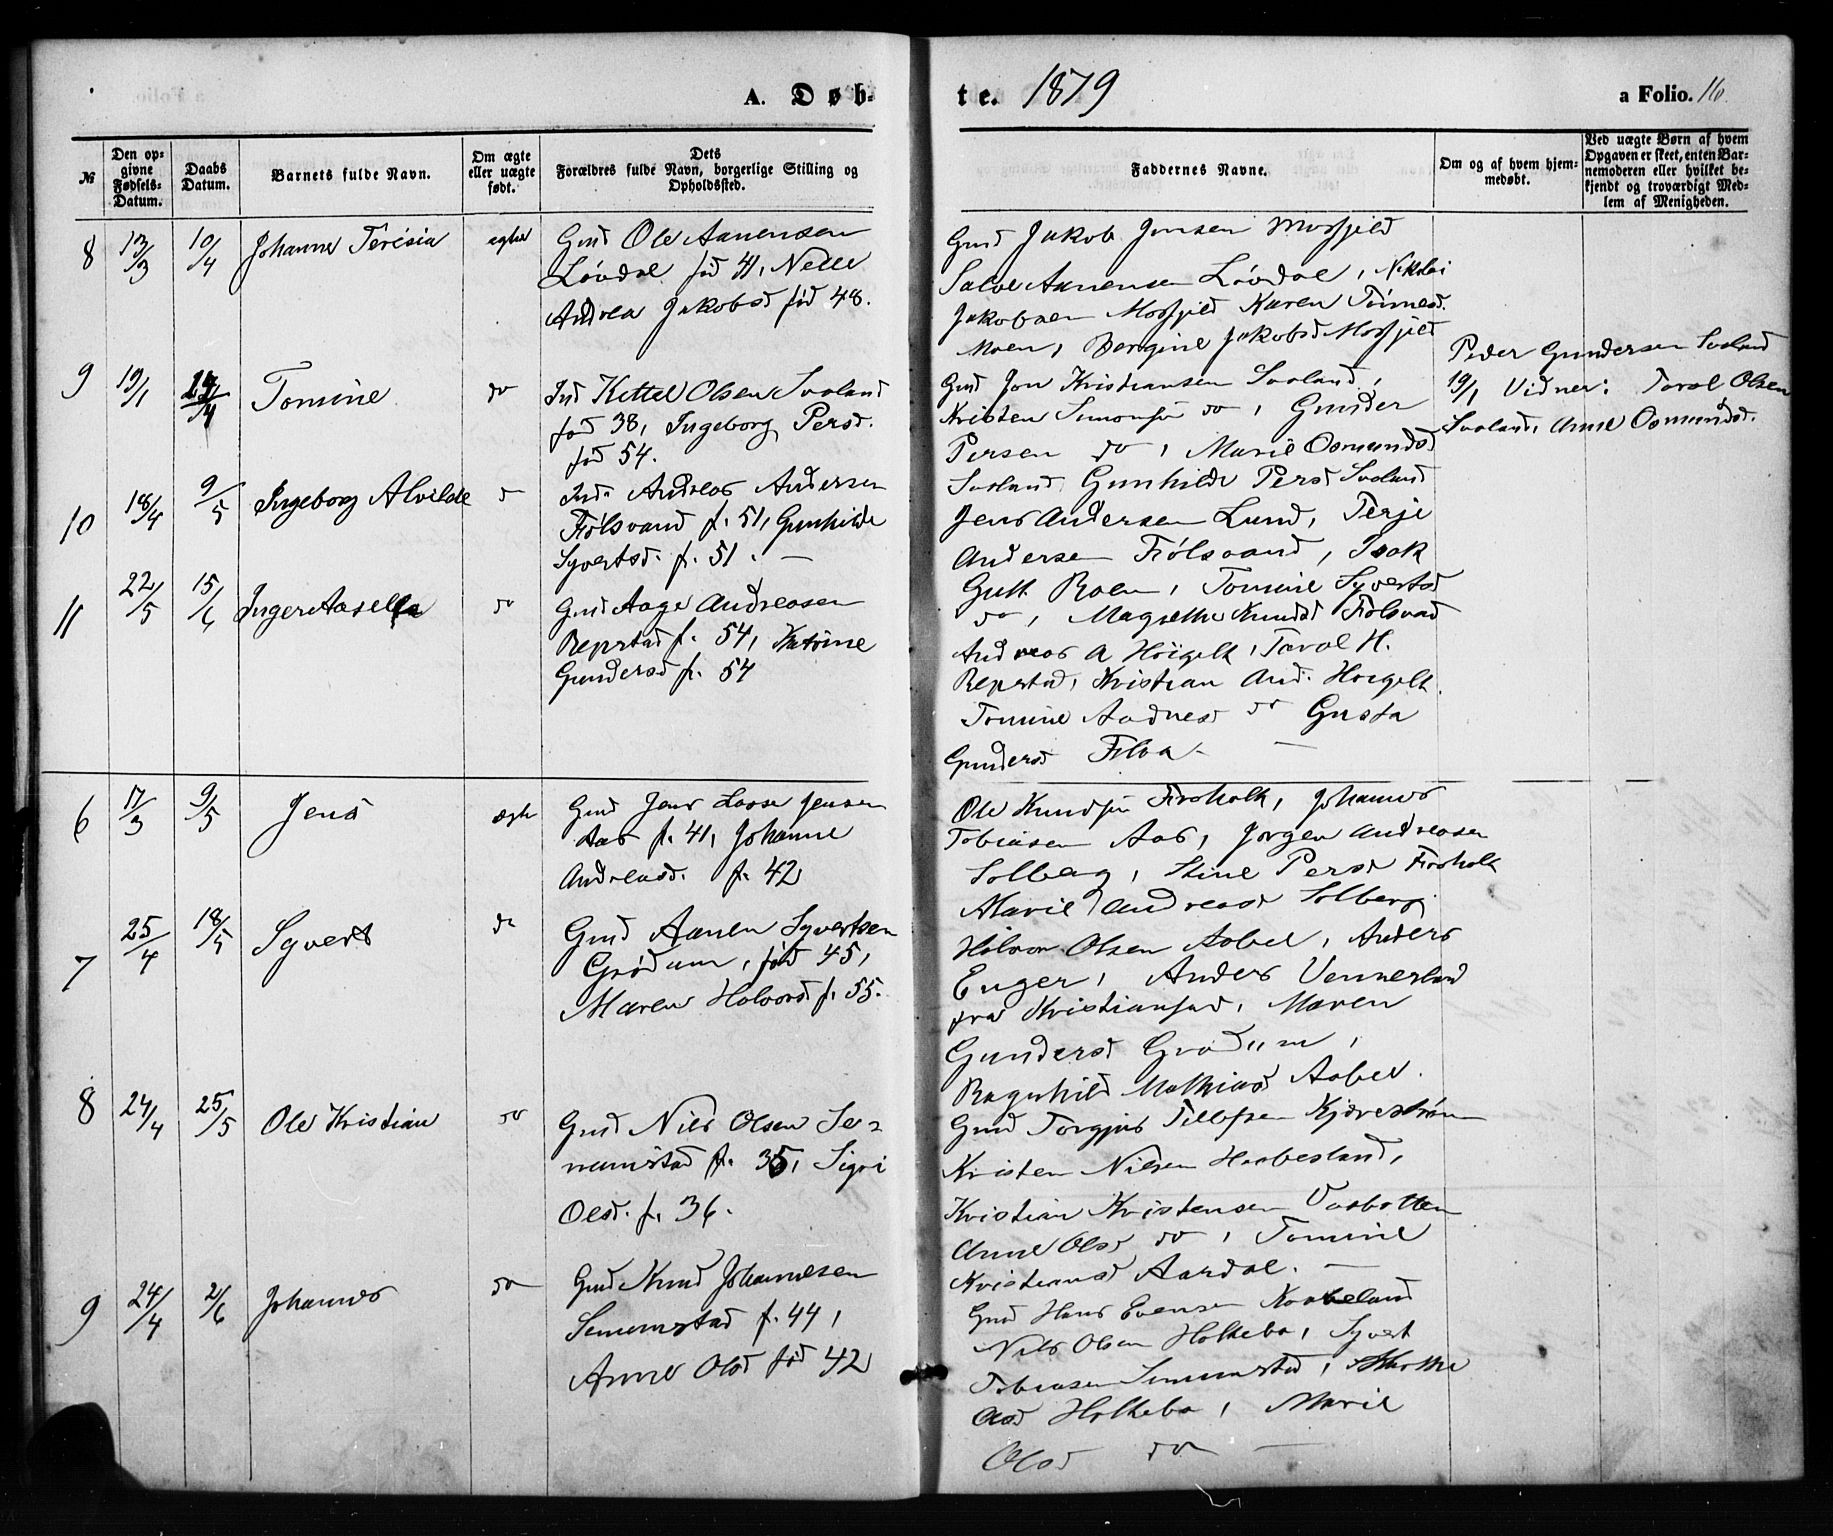 A. Døb-
te. 1879
a Folio. 16.
№
Den op-
givne
Fødsels-
Datum.
Daabs
Datum.
Barnets fulde Navn.
Om ægte
eller uægte
født.
Dets
Forældres fulde Navn, borgerlige Stilling og
Opholdssted.
Faddernes Navne.
Om og af hvem hjem-
medøbt.
Ved uægte Børn af hvem
Opgaven er skeet, enten Bar-
nemoderen eller hvilket be-
kjendt og troværdigt Med-
lem af Menigheden.
8 13/3 10/4 Johanne Terisia egte
Gmd Ole Aanensen
Løvdal fød 41, Nelle
Andrea Jakobsd fød 48.
Gmd Jakob Jensen Mosfjeld
Salve Aanensen Løvdal, Nikolai
Jakobsen Mosfjeld Karen Tómesd.
Moen, Bergine Jakobsd Mosfjeld
9 19/1 /4 Tomine do
Ind Kittel Olsen Svaland
fød 38, Ingeborg Persd.
fød 54.
Gmd Jon Kristiansen Svaland,
Kristen Simonsen do, Gunder
Persen do, Marie Osmundsd
Svaland Gunhilde Persd Svaland
Peder Gundersen Svaland
19/1 Vidner: Torol Olsen
Svaland, Anne Osmundsd.
10 18/4 9/5 Ingeborg Alvilde d
Ind. Andreas Andersen
Fiólsvand f. 51, Gunhilde
Syvertsd. f. 51. —
Jens Andersen Lund, Terje
Andersen Fiólsvand, Isak
Gutt. Roen, Tomine Syvertsd
do, Magrethe Knudsd Fiólsvad
11 22/5 15/6 Inger Aasella do
Gmd Aage Andreasen
Repstad f. 54, Katrine
Gundersd f. 54
Andreas A Høigelt, Torol H.
Repstad, Kristian And. Høigelt.
Tomine Aadnesd do Gusta
Gundersd Filva — —
6 17/3 9/5 Jens ægte
Gmd Jens Lasse Jensen
Aas f. 41, Johanne
Andreasd. f. 42
Ole Knudsen Firoholt, Johannes
Tobiasen Aas, Jorgen Andreasen
Solberg, Stine Persd Firoholt
Marie Andreasd Solberg
7 25/4 18/5 Syvert do
Gmd Aanen Syvertsen
Grødum, fød 45,
Maren Halvorsd f. 55.
Halvor Olsen Aabel, Anders
Euger, Anders Vennesland
fra Kristiansad, Maren
Gundersd Grødum,
Ragnhild Mathiasd Aabel.
8 24/4 25/5 Ole Kristian do
Gmd Nils Olsen Se-
numstad f. 35, Sigri
Olsd. f. 36.
Gmd Torgjus Tellefsen Kjærestrøm
Kristen Nilsen Haabesland,
Kristian Kristensen Vasbotten
Anne Olsd do, Tomine
Kristiansd Aardal. —
9 24/4 2/6 Johannes do
Gmd Knud Johannesen
Senumstad f. 44,
Anne Olsd fød 42
Gmd Hans Evensen Kaabeland
Nils Olsen Holtebo, Syvert
Tobiasen Senumstad, Marthe
Olsd Holtebo, Marie
Olsd do —